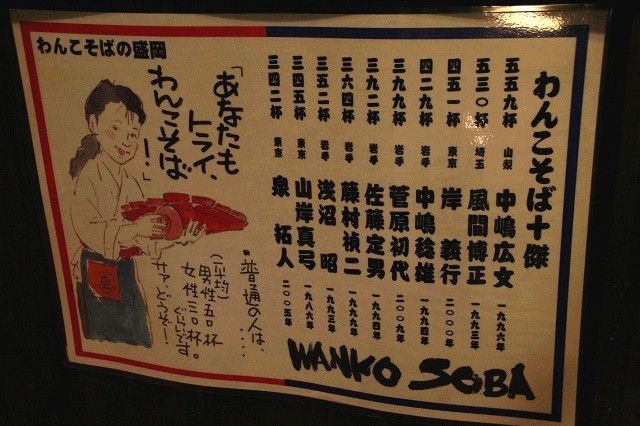 わんこそば十傑
五五九杯 山梨 中嶋広文 一九九六年
五三〇杯 埼玉 風間博正 一九九三年
四五一杯 東京 岸 義行 二〇〇〇年
四二九杯 岩手 中嶋稔雄 一九九四年
三九九杯 岩手 菅原初代 二〇〇九年
三九二杯 岩手 佐藤定男 一九九四年
三六四杯 岩手 藤村禎二 一九九九年
三五二杯 岩手 浅沼 昭 一九九三年
三四五杯 東京 山岸真弓 一九八六年
三四二杯 東京 泉 拓人 二〇〇五年
わんこそばの盛岡
「あなたも
トライ、
わんこそば
!」
■普通の人は、…
(平均)
男性五〇杯
女性三〇杯。
ぐらいです
サァ、どうぞー!
WANKO SOBA